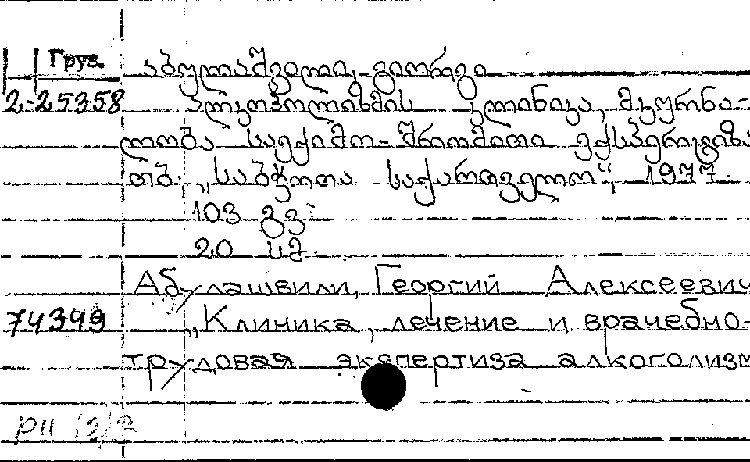 Груз.
აბულაშვილი, გიორგი
2-25358 ალკოჰოლიზმის კლინიკა, მკურნა-
ლობა საექიმო-შრომითი ექსპერტიზა
თბ. „საბჭოთა საქართველო“, 1977.
103 გვ.
20 სმ.
Абулашвили, Георгий Алексеевич
74349 „Клиника, лечение и врачебно-
трудовая экспертиза алкоголизм